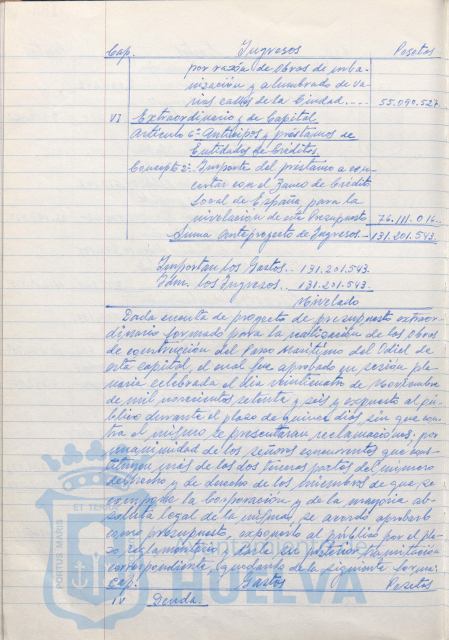 Cap. Ingresos Pesetas
por razón de Obras de urba-
nización y alumbrado de va-
rias calles de la Ciudad.--- 55.090.527.
VI Extraordinario y de Capital
Artículo 6º Anticipos y préstamos de
Entidades de Créditos.
Concepto 2º Importe del préstamo a con-
certar con el Banco de Crédito
Local de España para la
nivelación de este Presupuesto 76.111.016.
Suma Anteproyecto de Ingresos.- 131.201.543.
Importan los Gastos.. 131.201.543.
Idm. los Ingresos . 131.201.543.
Nivelado
Dada cuenta de proyecto de presupuesto extraor-
dinario formado para la realización de las Obras
de construcción del Paseo Marítimo del Odiel de
esta capital, el cual fue aprobado en sesión ple-
naria celebrada el día de Noviembre
de mil novecientos setenta y seis y expuesto al pú-
blico durante el plazo de quince días, sin que con-
tra el mismo se presentaran reclamaciones, por
unanimidad de los señores concurrentes que cons-
tituyen más de las dos terceras partes del número
de hecho y de derecho de los miembros de que se
compone la Corporación y de la mayoría ab-
soluta legal de la misma, se acordó aprobarlo
como presupuesto, exponerlo al público por el pla-
zo reglamentario y darle su posterior tramitación
correspondiente, quedando de la siguiente forma:
Cap: Gastos Pesetas
IV Deuda.
PORTUS MARIS
ET TERRAE
HUELVA